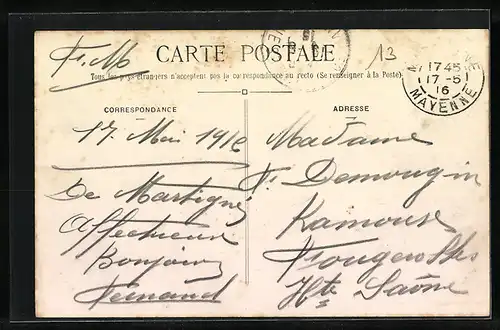 F. M
CARTE POSTALE
13
Tous les pays étrangers n'acceptent pas la correspondance au recto (Se renseigner à la Poste).
1745
17-5
16
MAYENNE
CORRESPONDANCE
ADRESSE
17 Mai 1916
De Martigné
Affectueux
Bonjour
Fernand
Madame
Demougin
Fougerolles
Hte Saône